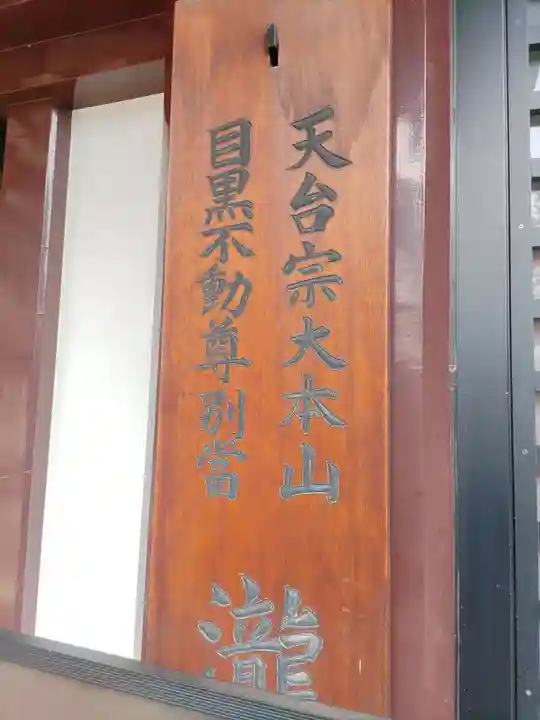 天台宗大本山
目黒不動尊別當
瀧